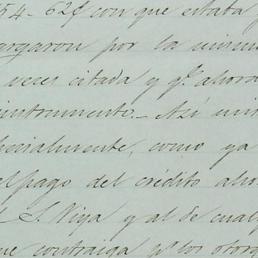 54-62¢ con que estaba
argaron por la misma
veces citada y qe. ahora
instrumento.- Así mi
ecialmente, como ya
el pago del crédito aho
S. Viya y al de cualq
ue contraiga y los otorg